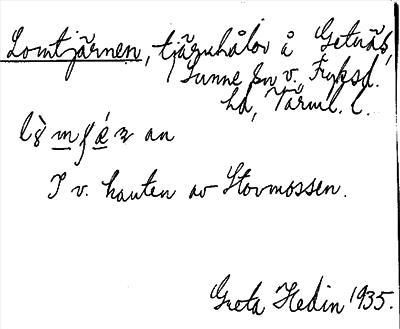 Lomtjärnen, tjärnhålor å Getnäs,
Sunne sn v. Fryksd.
hd, Värml. l.
an
I v. kanten av Stormossen.
Greta Hedin 1935.